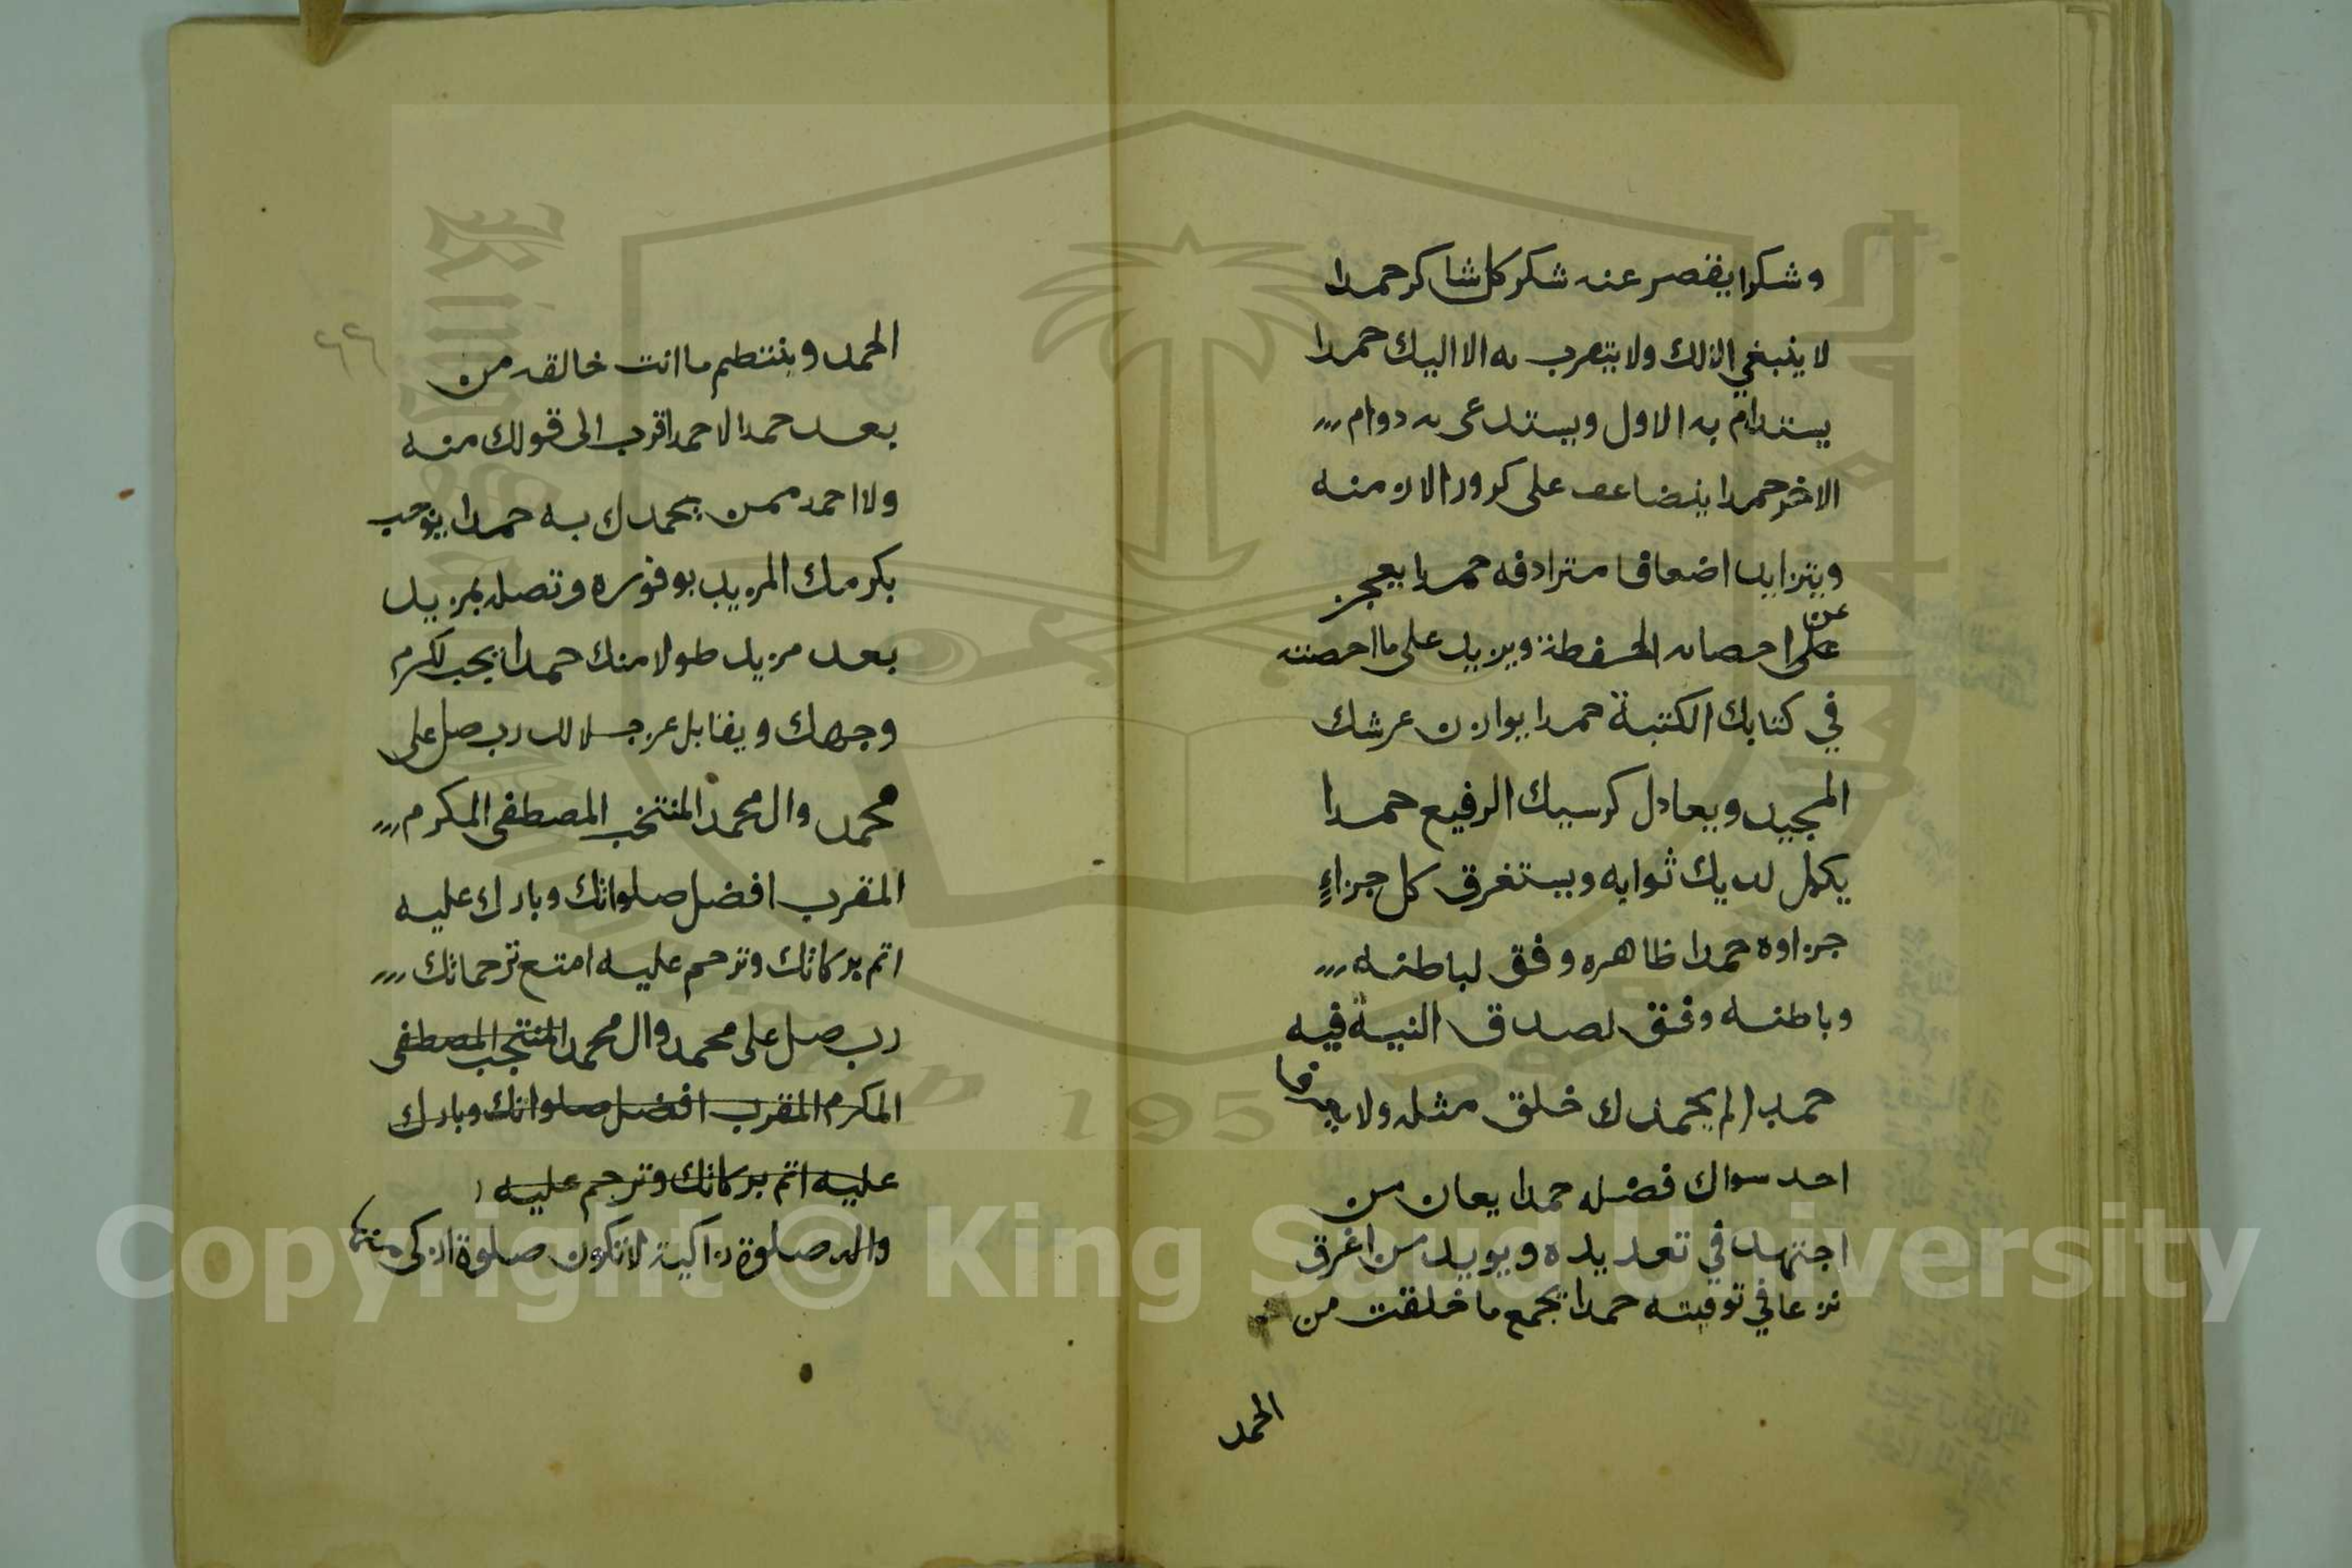 وشكرا يقصر عنه شكر كل شاكر حمدا
لا ينبغي الا لك ولا يتقرب به الا اليك حمدا
يستدام به الاول ويستدعى به دوام
الاخر حمدا يتضاعف على كرور الازمنه
ويتزايد اضعافا مترادفه حمدا يعجز
عن
على احصائه الحفظة ويزيد على ما احصته
في كتابك الكتبة حمدا يوازن عرشك
المجيد ويعادل كرسيك الرفيع حمدا
يكمل لديك ثوابه ويستغرق كل جزاءٍ
جزاوه حمدا ظاهره وفق لباطنه
وباطنه وفق لصدق النية فيه
حمدا لم يحمدك خلق مثله ولا يعرف
احد سواك فضله حمدا يعان من
اجتهد في تعديده ويويد من اغرق
نزعا في توفيته حمدا يجمع ما خلقت من
الحمد
٦٦
الحمد وينتظم ما انت خالقه من
بعد حمدا لا حمد اقرب الى قولك منه
ولا احمد ممن يحمدك به حمدا يوجب
بكرمك المزيد بوفوره وتصله بمزيد
بعد مزيد طولا منك حمدا يجب لكرم
وجهك ويقابل عز جلالك رب صل على
محمد وال محمد المنتخب المصطفى المكرم
المقرب افضل صلواتك وبارك عليه
اتم بركاتك وترحم عليه امتع ترحماتك
رب صل على محمد وال محمد المنتجب المصطفى
المكرم المقرب افضل صلواتك وبارك
عليه اتم بركاتك وترحم عليه
واله صلوة زاكية لا تكون صلوة ازكى منها
Copyright © King Saud University
195